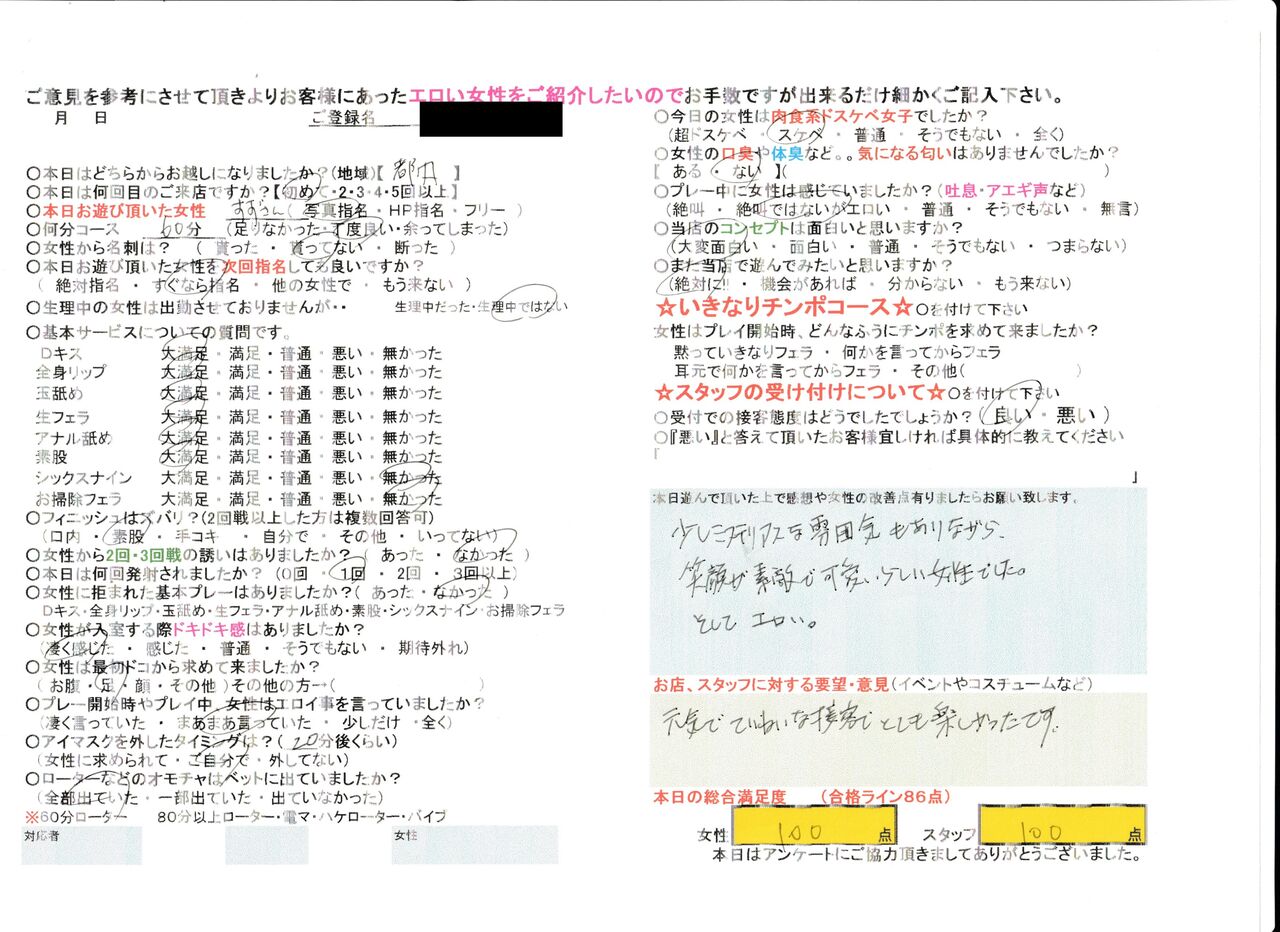 ご意見を参考にさせて頂きよりお客様にあったエロい女性をご紹介したいのでお手数ですが出来るだけ細かくご記入下さい。
月　日　ご登録名
〇本日はどちらからお越しになりましたか?(地域)【 都内 】
〇本日は何回目のご来店ですか?【初めて・2・3・4・5回以上】
〇本日お遊び頂いた女性　すずさん (写真指名・HP指名・フリー )
〇何分コース　60分　(足りなかった・丁度良い・余ってしまった)
〇女性から名刺は?　( 貰った ・ 貰ってない ・ 断った )
〇本日お遊び頂いた女性を次回指名しても良いですか?
( 絶対指名 ・ すぐなら指名 ・ 他の女性で ・ もう来ない )
〇生理中の女性は出勤させておりませんが・・　生理中だった・生理中ではない
〇基本サービスについての質問です。
Dキス　大満足・満足・普通・悪い・無かった
全身リップ　大満足・満足・普通・悪い・無かった
玉舐め　大満足・満足・普通・悪い・無かった
生フェラ　大満足・満足・普通・悪い・無かった
アナル舐め　大満足・満足・普通・悪い・無かった
素股　大満足・満足・普通・悪い・無かった
シックスナイン　大満足・満足・普通・悪い・無かった
お掃除フェラ　大満足・満足・普通・悪い・無かった
〇フィニッシュはズバリ?(2回戦以上した方は複数回答可)
(口内 ・ 素股 ・ 手コキ ・ 自分で ・ その他 ・ いってない)
〇女性から2回・3回戦の誘いはありましたか? ( あった ・ なかった )
〇本日は何回発射されましたか? (0回 ・ 1回 ・ 2回 ・ 3回以上)
〇女性に拒まれた基本プレーはありましたか?( あった ・ なかった )
Dキス・全身リップ・玉舐め・生フェラ・アナル舐め・素股・シックスナイン・お掃除フェラ
〇女性が入室する際ドキドキ感はありましたか?
(凄く感じた ・ 感じた ・ 普通 ・ そうでもない ・ 期待外れ)
〇女性は最初ドコから求めて来ましたか?
( お腹 ・ 足 ・ 顔 ・ その他 )その他の方→(　)
〇プレー開始時やプレイ中、女性はエロイ事を言っていましたか?
(凄く言っていた ・ まあまあ言っていた ・ 少しだけ ・ 全く)
〇アイマスクを外したタイミングは?( 20分後くらい)
(女性に求められて ・ ご自分で ・ 外してない)
〇ローターなどのオモチャはベットに出ていましたか?
(全部出ていた ・ 一部出ていた ・ 出ていなかった)
※60分ローター　80分以上ローター・電マ・ハケローター・バイブ
対応者　女性
〇今日の女性は肉食系ドスケベ女子でしたか?
(超ドスケベ ・ スケベ ・ 普通 ・ そうでもない ・ 全く)
〇女性の口臭や体臭など。。気になる匂いはありませんでしたか?
[ ある ・ ない 】(　)
〇プレー中に女性は感じていましたか?(吐息・アエギ声など)
(絶叫 ・ 絶叫ではないがエロい ・ 普通 ・ そうでもない ・ 無言)
〇当店のコンセプトは面白いと思いますか?
(大変面白い ・ 面白い ・ 普通 ・ そうでもない ・ つまらない)
〇また当店で遊んでみたいと思いますか?
(絶対に!! ・ 機会があれば ・ 分からない ・ もう来ない)
☆いきなりチンポコース☆〇を付けて下さい
女性はプレイ開始時、どんなふうにチンポを求めて来ましたか?
黙っていきなりフェラ ・ 何かを言ってからフェラ
耳元で何かを言ってからフェラ ・ その他(　)
☆スタッフの受け付けについて☆〇を付けて下さい
〇受付での接客態度はどうでしたでしょうか?( 良い ・ 悪い )
〇『悪い』と答えて頂いたお客様宜しければ具体的に教えてください
「　」
本日遊んで頂いた上で感想や女性の改善点有りましたらお願い致します。
少しミステリアスな雰囲気もありながら、
笑顔が素敵で可愛いらしい女性でした。
そしてエロい。
お店、スタッフに対する要望・意見(イベントやコスチュームなど)
元気でていねいな接客でとても楽しかったです。
本日の総合満足度　(合格ライン86点)
女性　100　点　スタッフ　100　点
本日はアンケートにご協力頂きましてありがとうございました。